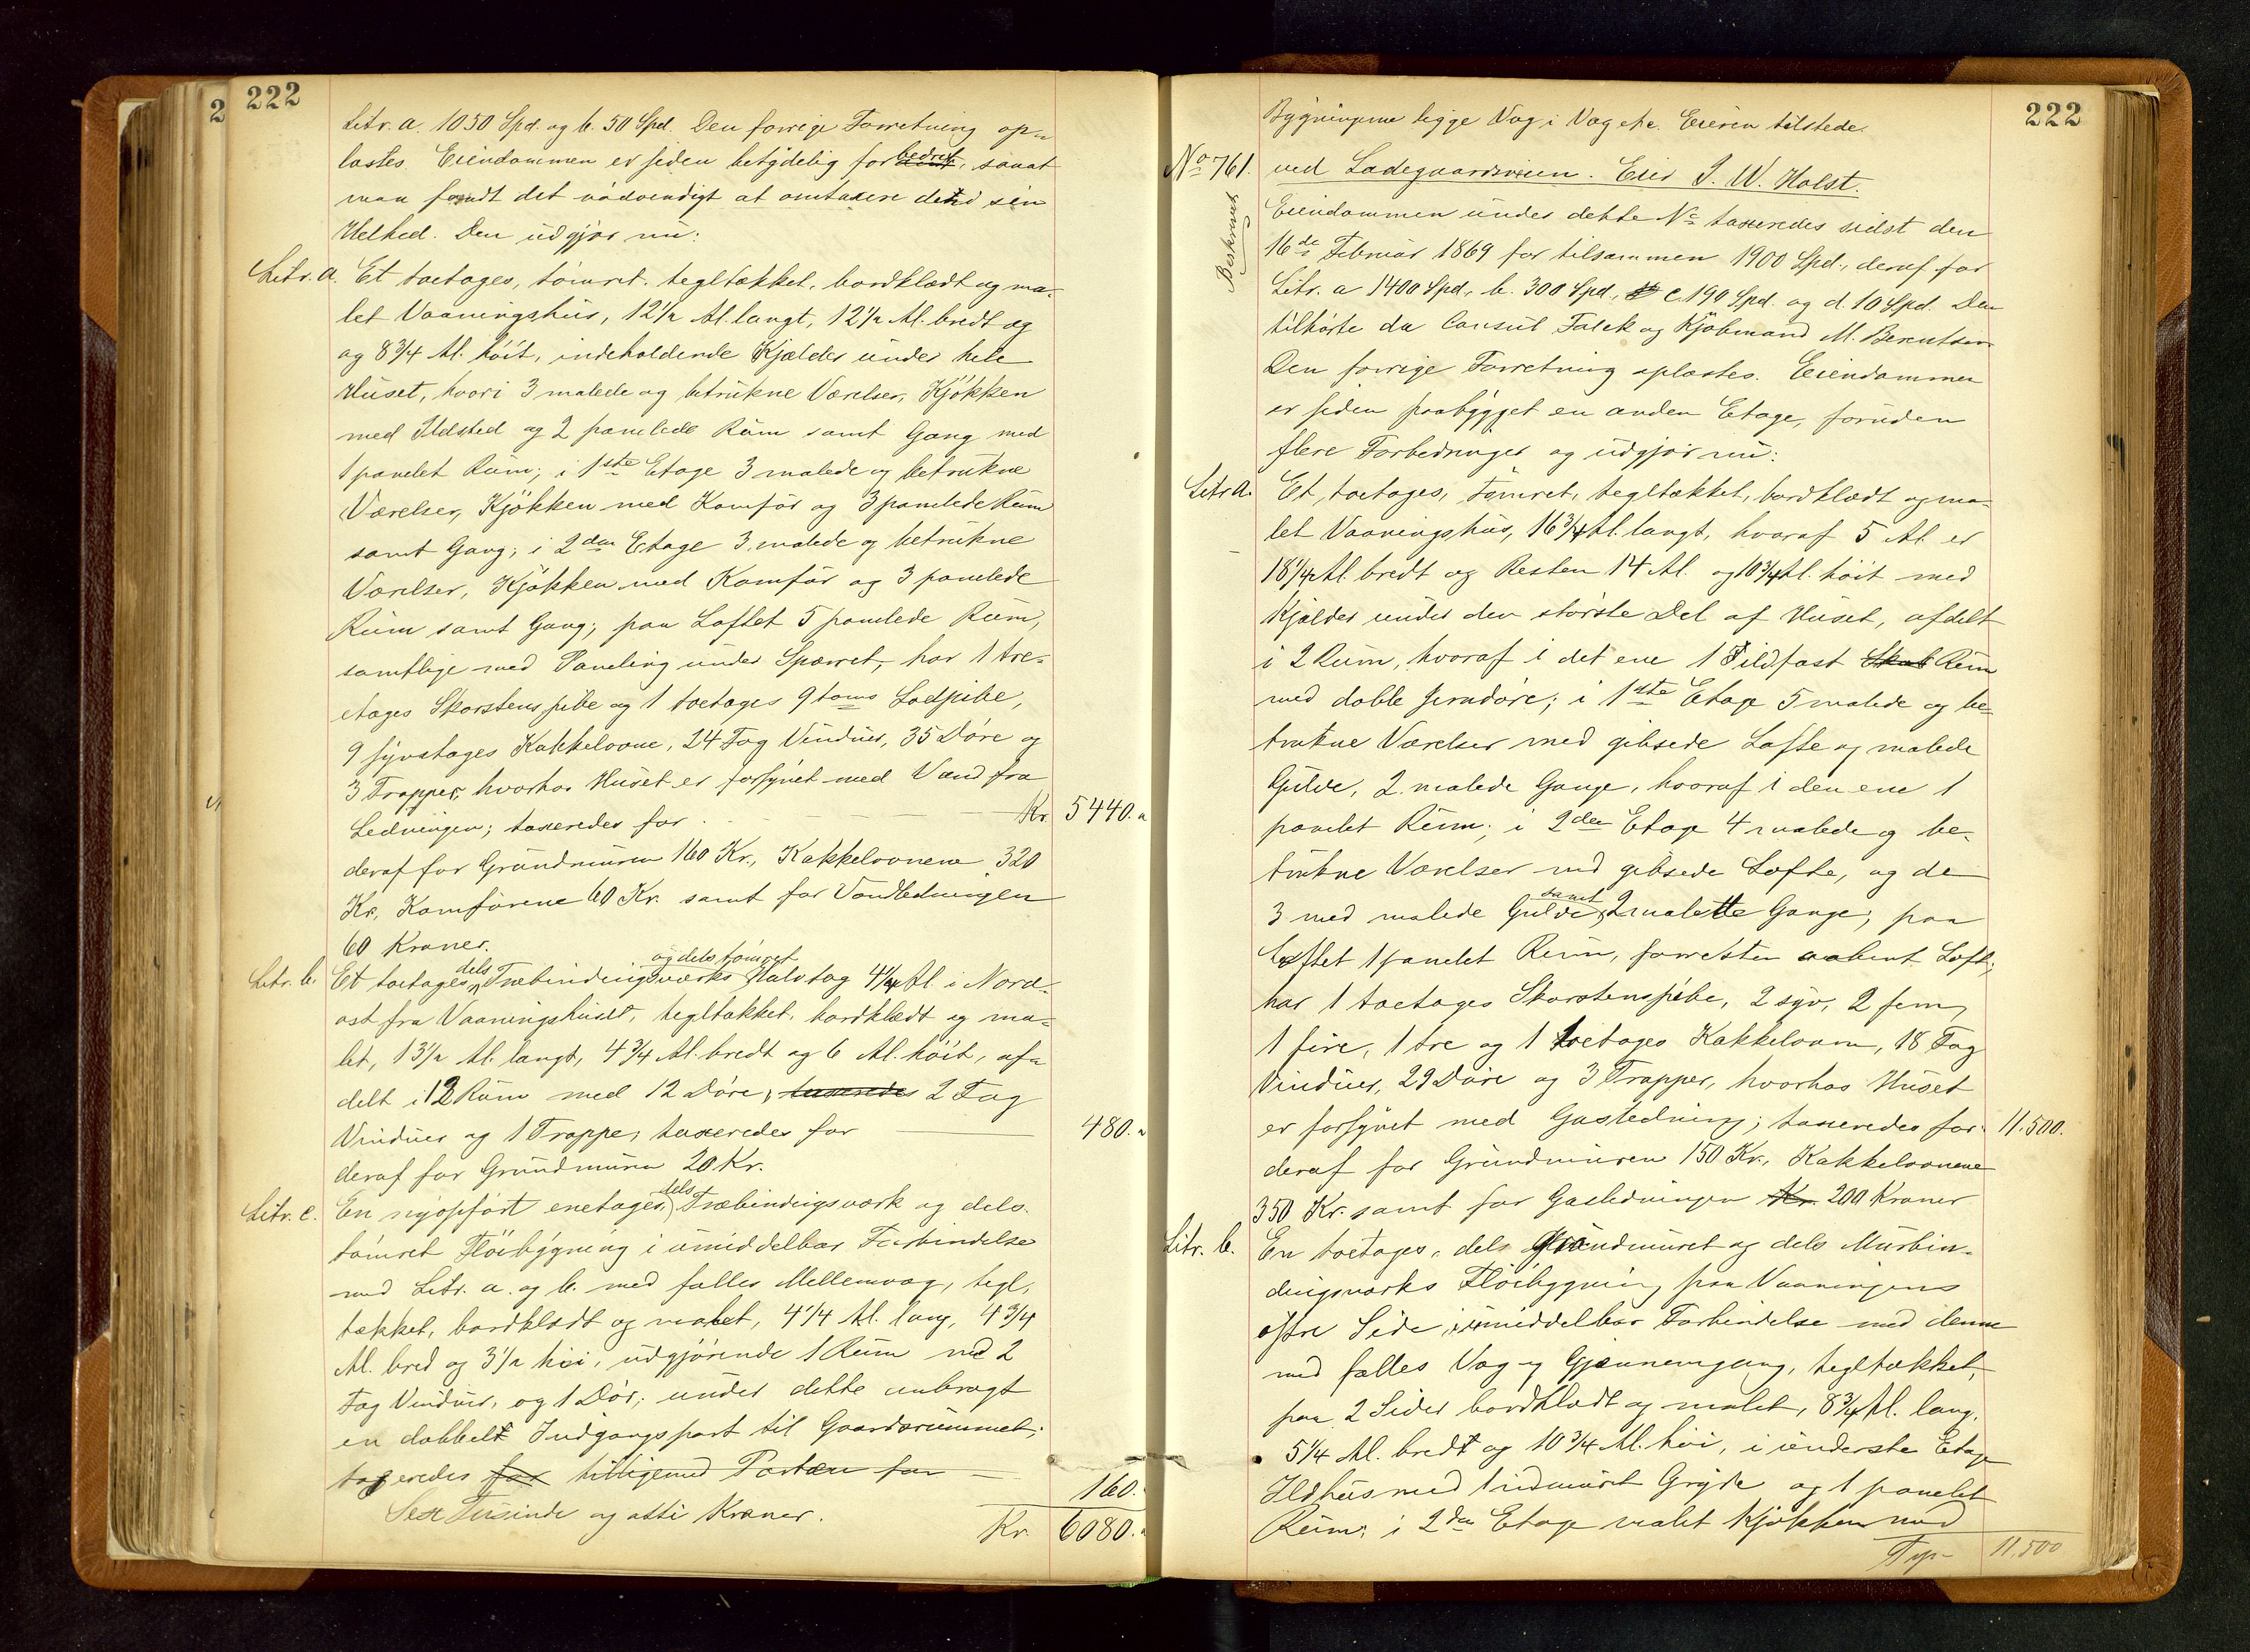 222
Litr. a. 1050 Spd. og b. 50 Spd. Den forrige Forretning op-
lastes. Eiendommen er siden betydelig forbedret, saaat
man fandt det nødvendigt at omtaxere den i sin
Helhed. Den udgjør nu:
Litr. a. Et toetages, tømret, tegltækket, bordklædt og ma-
let Vaaningshus, 12 1/2 Al. langt, 12 1/2 Al. bredt og
og 8 3/4 Al. høit, indeholdende Kjælder under hele
Huset, hvori 3 malede og betrukne Værelser, Kjøkken
med Ildsted og 2 panelede Rum samt Gang med
1 panelet Rum; i 1ste Etage 3 malede og betrukne
Værelser, Kjøkken med Komfør og 3 panelede Rum
samt Gang; i 2den Etage 3 malede og betrukne
Værelser, Kjøkken med Komfør og 3 panelede
Rum samt Gang; paa Loftet 5 panelede Rum,
samtlige med Paneling under Sparret, har 1 tre-
etages Skorstenspibe og 1 toetages 9 toms Lodpibe,
9 syvetages Kakkelovne, 24 Fag Vinduer, 35 Døre og
3 Trapper, hvorhos Huset er forsynet med Vand fra
Ledningen; taxeredes for Kr. 5440.
deraf for Grundmuren 160 Kr., Kakkelovnene 320
Kr., Komførene 60 Kr. samt for Vandledningen
60 Kroner.
Litr. b. Et toetages dels Træbindingsværks og dels tømret Halvtag 4 1/4 Al. i Nord-
ost fra Vaaningshuset, tegltækket, bordklædt og ma-
let, 13 1/2 Al. langt, 4 3/4 Al. bredt og 6 Al. høit, af-
delt i 12 Rum med 12 Døre, taxeredes 2 Fag
Vinduer og 1 Trappe; taxeredes for 480.
deraf for Grundmuren 20 Kr.
Litr. c. En nyopført enetages, dels Træbindingsværk og dels
tømret Fløibygning i umiddelbar Forbindelse
med Litr. a. og b. med fælles Mellemvæg, tegl-
tækket, bordklædt og malet, 4 1/4 Al. lang, 4 3/4
Al. bred og 3 1/2 høi, udgjørende 1 Rum med 2
Fag Vinduer, og 1 Dør; under dette anbragt
en dobbelt Indgangsport til Gaardsrummet;
taxeredes for tilligemed Porten for 160.
Sex Tusinde og otti Kroner. Kr. 6080.
222
Bygningerne ligge Væg i Væg etc. Eieren tilstede.
No 761. ved Ladegaardsveien. Eier J. W. Holst.
Beskrevet
Eiendommen under dette No taxeredes sidst den
16de Februar 1869 for tilsammen 1900 Spd., deraf for
Litr. a 1400 Spd., b. 300 Spd., c. 190 Spd. og d. 10 Spd. Den
tilhørte da Consul Falck og Kjøbmand M. Berentsen
Den forrige Forretning oplastes. Eiendommen
er siden paabygget en anden Etage, foruden
flere Forbedringer og udgjør nu:
Litr a. Et, toetages, tømret, tegltækket, bordklædt og ma-
let Vaaningshus, 16 3/4 Al. langt, hvoraf 5 Al. er
18 1/4 Al. bredt og Resten 14 Al. og 10 3/4 Al. høit med
Kjælder under den største Del af Huset, afdelt
i 2 Rum, hvoraf i det ene 1 ildfast Skab Rum
med doble Jerndøre; i 1ste Etage 5 malede og be-
trukne Værelser med gibsede Lofte og malede
Gulve, 2 malede Gange, hvoraf i den ene 1
panelet Rum; i 2den Etage 4 malede og be-
trukne Værelser med gibsede Lofte, og de
3 med malede Gulve, samt 2 malette Gange; paa
Loftet 1 panelet Rum, forresten aabent Loft;
har 1 toetages Skorstenspibe, 2 syv, 2 fem,
1 fire, 1 tre og 1 toetages Kakkelovn, 18 Fag
Vinduer, 29 Døre og 3 Trapper, hvorhos Huset
er forsynet med Gasledning; taxeredes for 11.500.
deraf for Grundmuren 150 Kr., Kakkelovnene
350 Kr. samt for Gasledningen Kr. 200 Kroner
Litr. b. En toetages, dels Grundmuret og dels Murbin-
dingsværks Fløibygning paa Vaaningens
østre Side, i umiddelbar Forbindelse med denne
med fælles Væg og Gjennemgang, tegltækket,
paa 2 Sider bordklædt og malet, 8 3/4 Al. lang,
5 1/4 Al. bredt og 10 3/4 Al. høi, i underste Etage
Ildhus med 1 indmuret Gryde og 1 panelet
Rum; i 2den Etage malet Kjøkken med
11,500